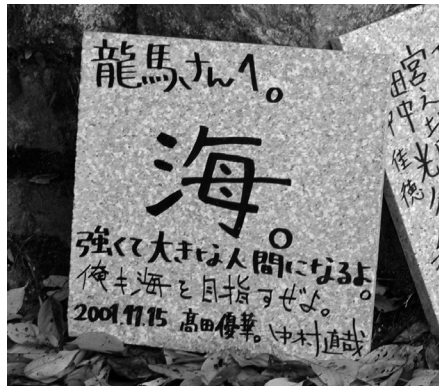 龍馬さんへ。
海。
強くて大きな人間になるよ。
俺も海を目指すぜよ。
2001.11.15 髙田優華。中村直哉
宮
沖
佳徳
光